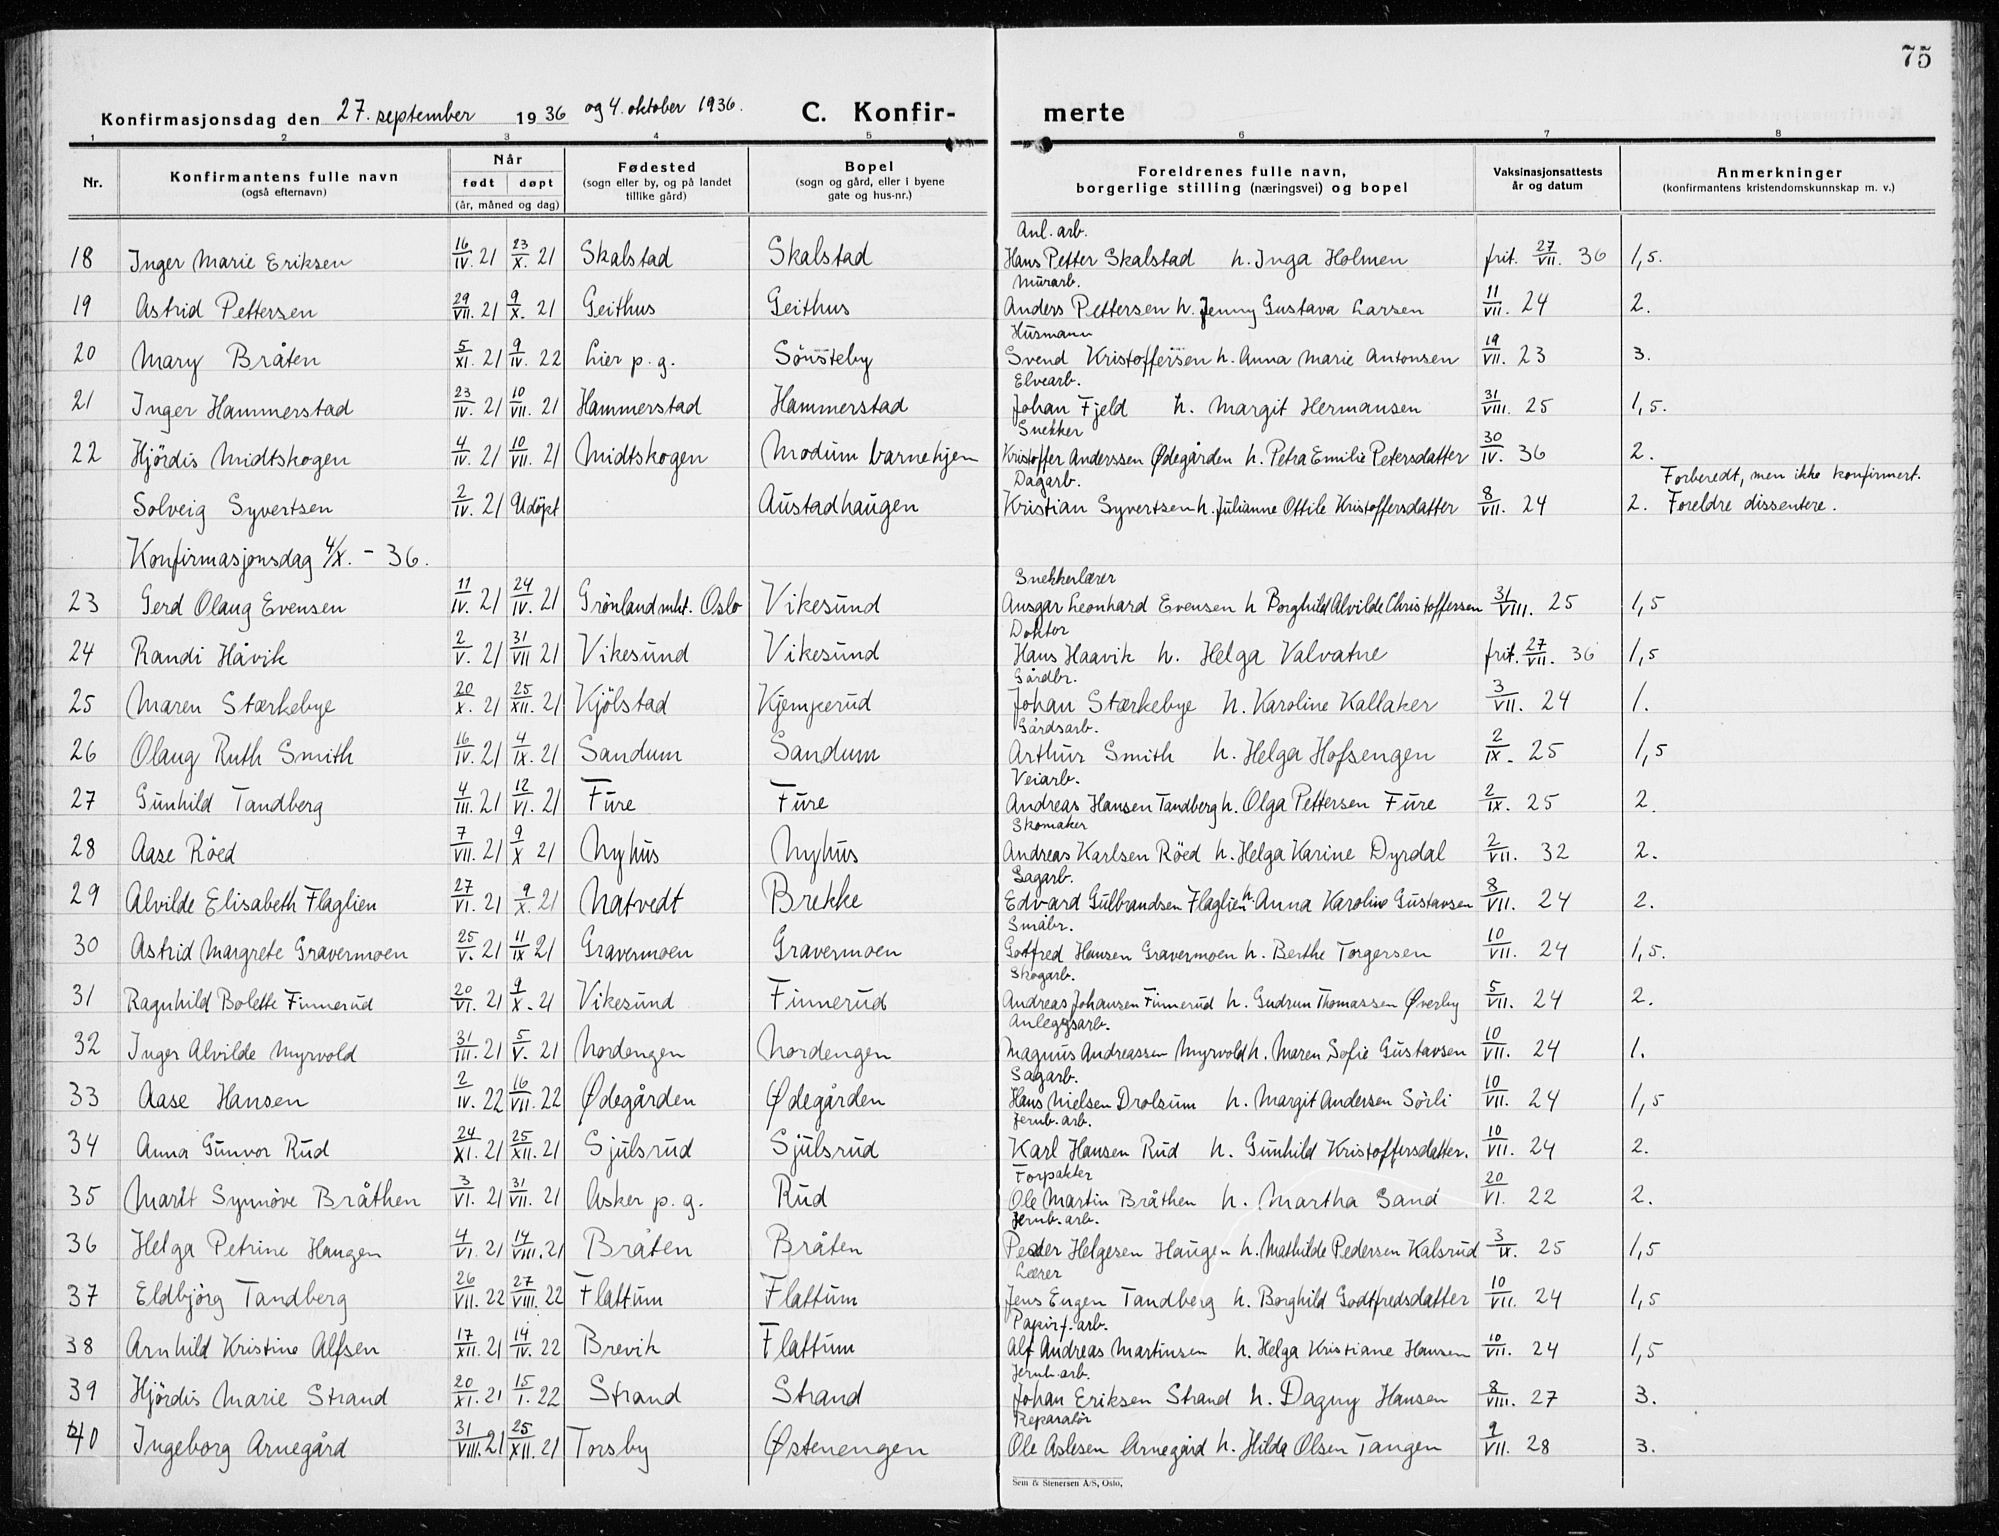 75
Konfirmasjonsdag den 27. september 1936 og 4. oktober 1936. C. Konfir- merte
1 2 3 4 5 6 7 8
Nr. Konfirmantens fulle navn (også efternavn) Når født døpt (år, måned og dag) Fødested (sogn eller by, og på landet tillike gård) Bopel (sogn og gård, eller i byene gate og hus-nr.) Foreldrenes fulle navn, borgerlige stilling (næringsvei) og bopel Vaksinasjonsattests år og datum Anmerkninger (konfirmantens kristendomskunnskap m. v.)
Anl. arb.
18 Inger Marie Eriksen 16/IV. 21 23/X. 21 Skalstad Skalstad Hans Petter Skalstad h. Inga Holmen frit. 27/VII. 36 1,5.
Murarb.
19 Astrid Pettersen 29/VII. 21 9/X. 21 Geithus Geithus Anders Pettersen h. Jenny Gustava Larsen 11/VII. 24 2.
Husmann
20 Mary Bråten 5/XI. 21 9/IV. 22 Lier p. g. Sönsteby Svend Kristoffersen h. Anna Marie Antonsen 19/VII. 23 3.
Elvearb.
21 Inger Hammerstad 23/IV. 21 10/VII. 21 Hammerstad Hammerstad Johan Fjeld h. Margit Hermansen 31/VIII. 25 1,5.
Snekker
22 Hjördis Midtskogen 4/IV. 21 10/VII. 21 Midtskogen Modum barnehjem Kristoffer Anderssen Ødegården h. Petra Emilie Petersdatter 30/IV. 36 2.
Dagarb. Forberedt, men ikke konfirmert.
Solveig Syvertsen 2/IV. 21 Udöpt Austadhaugen Kristian Syvertsen h. Julianne Ottile Kristoffersdatter 8/VII. 24 2. Foreldre dissentere.
Konfirmasjonsdag 4/X. - 36.
Snekkerlærer
23 Gerd Olaug Evensen 11/IV. 21 24/IV. 21 Grönland mht. Oslo Vikesund Ansgar Leonhard Evensen h Borghild Alvilde Christoffersen 31/VIII. 25 1,5
Doktor
24 Randi Håvik 2/V. 21 31/VII 21 Vikesund Vikesund Hans Haavik h. Helga Valvatne frit. 27/VII. 36 1,5
Gårdbr.
25 Maren Stærkebye 20/X. 21 25/XII. 21 Kjölstad Kjempérud Johan Stærkebye h. Karoline Kallaker 3/VII. 24 1.
Gårdsarb.
26 Olaug Ruth Smith 16/IV. 21 4/IX. 21 Sandum Sandum Arthur Smith h. Helga Hofsengen 2/IX. 25 1,5
Veiarb.
27 Gunhild Tandberg 4/III. 21 12/VI. 21 Fure Fure Andreas Hansen Tandberg h. Olga Pettersen Fure 2/IX. 25 2.
Skomaker
28 Aase Röed 7/VII. 21 9/X 21 Nyhus Nyhus Andreas Karlsen Röed h. Helga Karine Dyrdal 2/VII. 32 2.
Sagarb.
29 Alvilde Elisabeth Flaglien 27/VI. 21 9/X. 21 Natvedt Brekke Edvard Gulbrandsen Flaglien h. Anna Karoline Gustavsen 8/VII. 24 2.
Småbr.
30 Astrid Margrete Gravermoen 25/V. 21 11/IX 21 Gravermoen Gravermoen Gotfred Hansen Gravermoen h. Berthe Torgersen 10/VII. 24 1,5.
Skogarb.
31 Ragnhild Bolette Finnerud 20/VI. 21 9/X. 21 Vikesund Finnerud Andreas Johansen Finnerud h. Gudrun Thomassen Øverby 5/VII. 24 2.
Anleggsarb.
32 Inger Alvilde Myrvold 31/III. 21 5/V. 21 Nordengen Nordengen Magnus Andreassen Myrvold h. Maren Sofie Gustavsen 10/VII. 24 1.
Sagarb.
33 Aase Hansen 2/IV. 22 16/VII. 22 Ødegården Ødegården Hans Nielsen Drolsum h. Margit Andersen Sörli 10/VII. 24 1,5
Jernb. arb.
34 Anna Gunvor Rud 24/XI. 21 25/XII. 21 Sjulsrud Sjulsrud Karl Hansen Rud h. Gunhild Kristoffersdatter. 10/VII. 24 2.
Forpakter
35 Marit Synnöve Bråthen 3/VI. 21 31/VII. 21 Asker p. g. Rud Ole Martin Bråthen h. Martha Sand 20/VI. 22 2.
Jernb. arb.
36 Helga Petrine Haugen 4/VI. 21 14/VIII. 21 Bråten Bråten Peder Helgesen Haugen h. Mathilde Pedersen Kalsrud 3/IX. 25 1,5
Lærer
37 Eldbjörg Tandberg 26/VII. 22 27/VIII. 22 Flattum Flattum Jens Eugen Tandberg h. Borghild Godtfredsdatter 10/VII. 24 1,5
Papirf. arb.
38 Arnhild Kristine Alfsen 17/XII. 21 14/IV. 22 Brevik Flattum Alf Andreas Martinsen h. Helga Kristiane Hansen 10/VII. 24 1,5
Jernb. arb.
39 Hjördis Marie Strand 20/XI. 21 15/I. 22 Strand Strand Johan Eriksen Strand h. Dagny Hansen 8/VIII. 27 3.
Reparatör
40 Ingeborg Arnegård 31/VIII. 21 25/XII. 21 Torsby Østenengen Ole Aslesen Arnegård h. Hilda Olsen Tangen 9/VII. 28 3.
Sem & Stenersen A/S, Oslo,